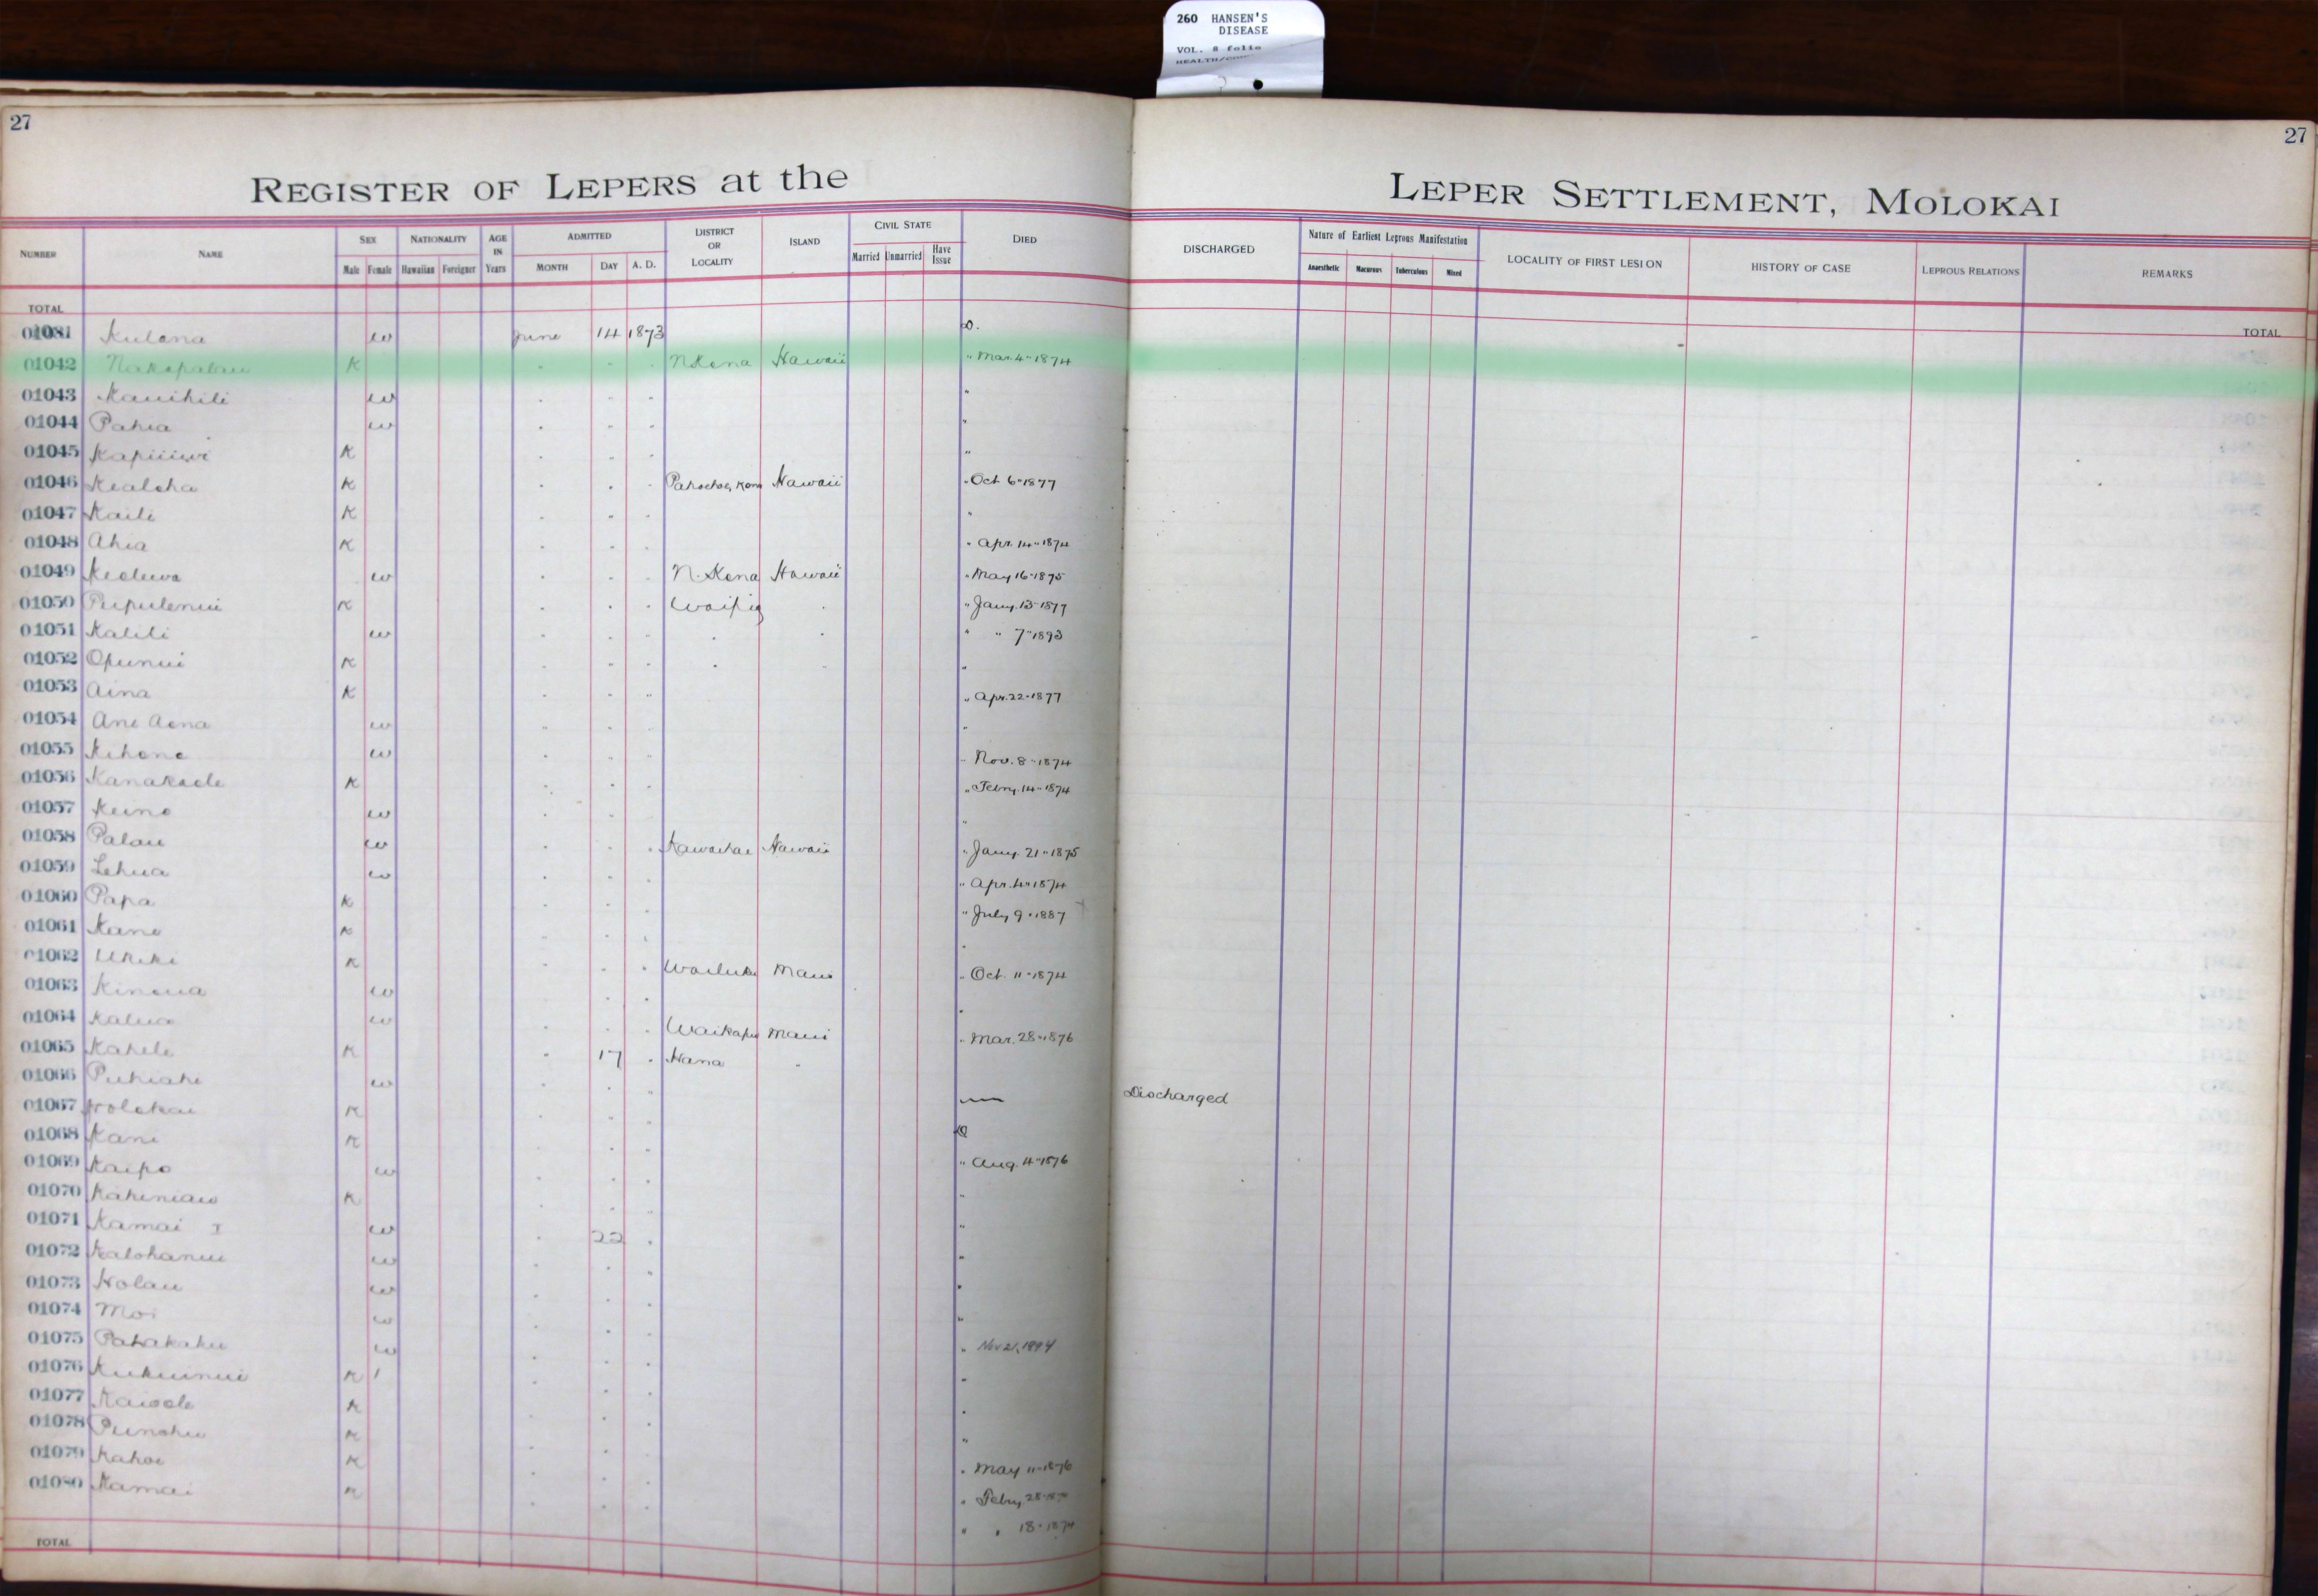 260 HANSEN'S
DISEASE
VOL. 8 folio
27
27
REGISTER OF LEPERS at the LEPER SETTLEMENT, MOLOKAI
NUMBER NAME SEX NATIONALITY AGE IN Years ADMITTED DISTRICT OR LOCALITY ISLAND CIVIL STATE DIED DISCHARGED Nature of Earliest Leprous Manifestation LOCALITY OF FIRST LESION HISTORY OF CASE LEPROUS RELATIONS REMARKS
Male Female Hawaiian Foreigner MONTH DAY A. D. Married Unmarried Have Issue Anaesthetic Macurous Tuberculous Mixed
TOTAL TOTAL
Kulana w June 14 1873 D.
01042 Nakapalau K " " " N Kona Hawaii " Mar. 4 " 1874
01043 Kauihili w " " " "
01044 Pahia w " " " "
01045 K " " " "
01046 Kealoha K " " " Hawaii " Oct 6 " 1877
01047 Kaili K " " " "
01048 Ahia K " " " " Apr. 14 " 1874
01049 w " " " N. Kona Hawaii " May 16 " 1875
01050 Pupulenui K " " " Waipio " " Jany. 13 " 1877
01051 Kalili w " " " " " " " 7 " 1893
01052 Opunui K " " " " " "
01053 Aina K " " " " Apr. 22 " 1877
01054 Ane Aona w " " " "
01055 Kihene w " " " " Nov. 8 " 1874
01056 Kanakaole K " " " " Febry. 14 " 1874
01057 Keino w " " " "
01058 Palau w " " " Kawaihae Hawaii " Jany. 21 " 1875
01059 Lehua w " " " " Apr. 4 " 1874
01060 Papa K " " " " July 9 " 1887
01061 Kane K " " " "
01062 Ukeke K " " " Wailuku Maui " Oct. 11 " 1874
01063 Kinoua w " " " "
01064 Kalua w " " " Waikapu Maui " Mar. 28 " 1876
01065 Kahele K " 17 " Hana "
01066 Puhiahi w " " " — Discharged
01067 Holokai K " " " D
01068 Kani K " " " " Aug. 4 " 1876
01069 Kaipo w " " " "
01070 K " " " "
01071 Kamai I w " 22 " "
01072 Kalohanui w " " " "
01073 Holau w " " " "
01074 Moi w " " "
01075 Pahakahu w " " " " Nov 21, 1894
01076 Kukuinui K 1 " " " "
01077 Kaiwole K " " " "
01078 Punohu K " " " "
01079 Kahoe K " " " " May 11 " 1876
01080 Kamai K " " " " Febry 28
" " 18 " 1874
TOTAL